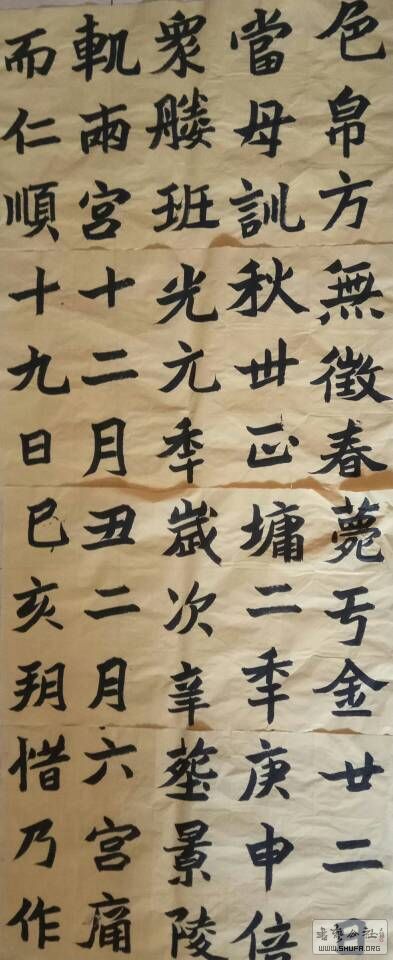 色帛方無徵春薨亏金廿二
當母訓秋丗正墉二秊庚申倍
衆媵班光元秊嵗次辛塟景陵
軌兩宮十二月丑二月六宮痛
而仁順十九日巳亥玥惜乃作
書藝公社
WWW.SHUFA.ORG